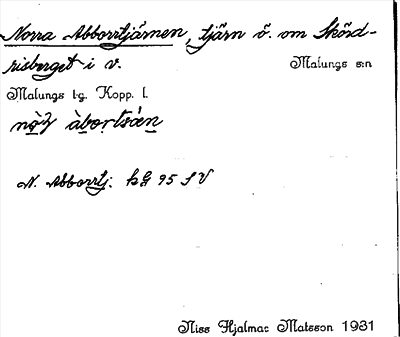 Norra Abborrtjärnen, tjärn ö. om Skörd-
risberget i v.
Malungs s:n
Malungs t:g. Kopp. l.
àbortsän
N. Abborrtj. kG 95 SV
Niss Hjalmar Matsson 1931